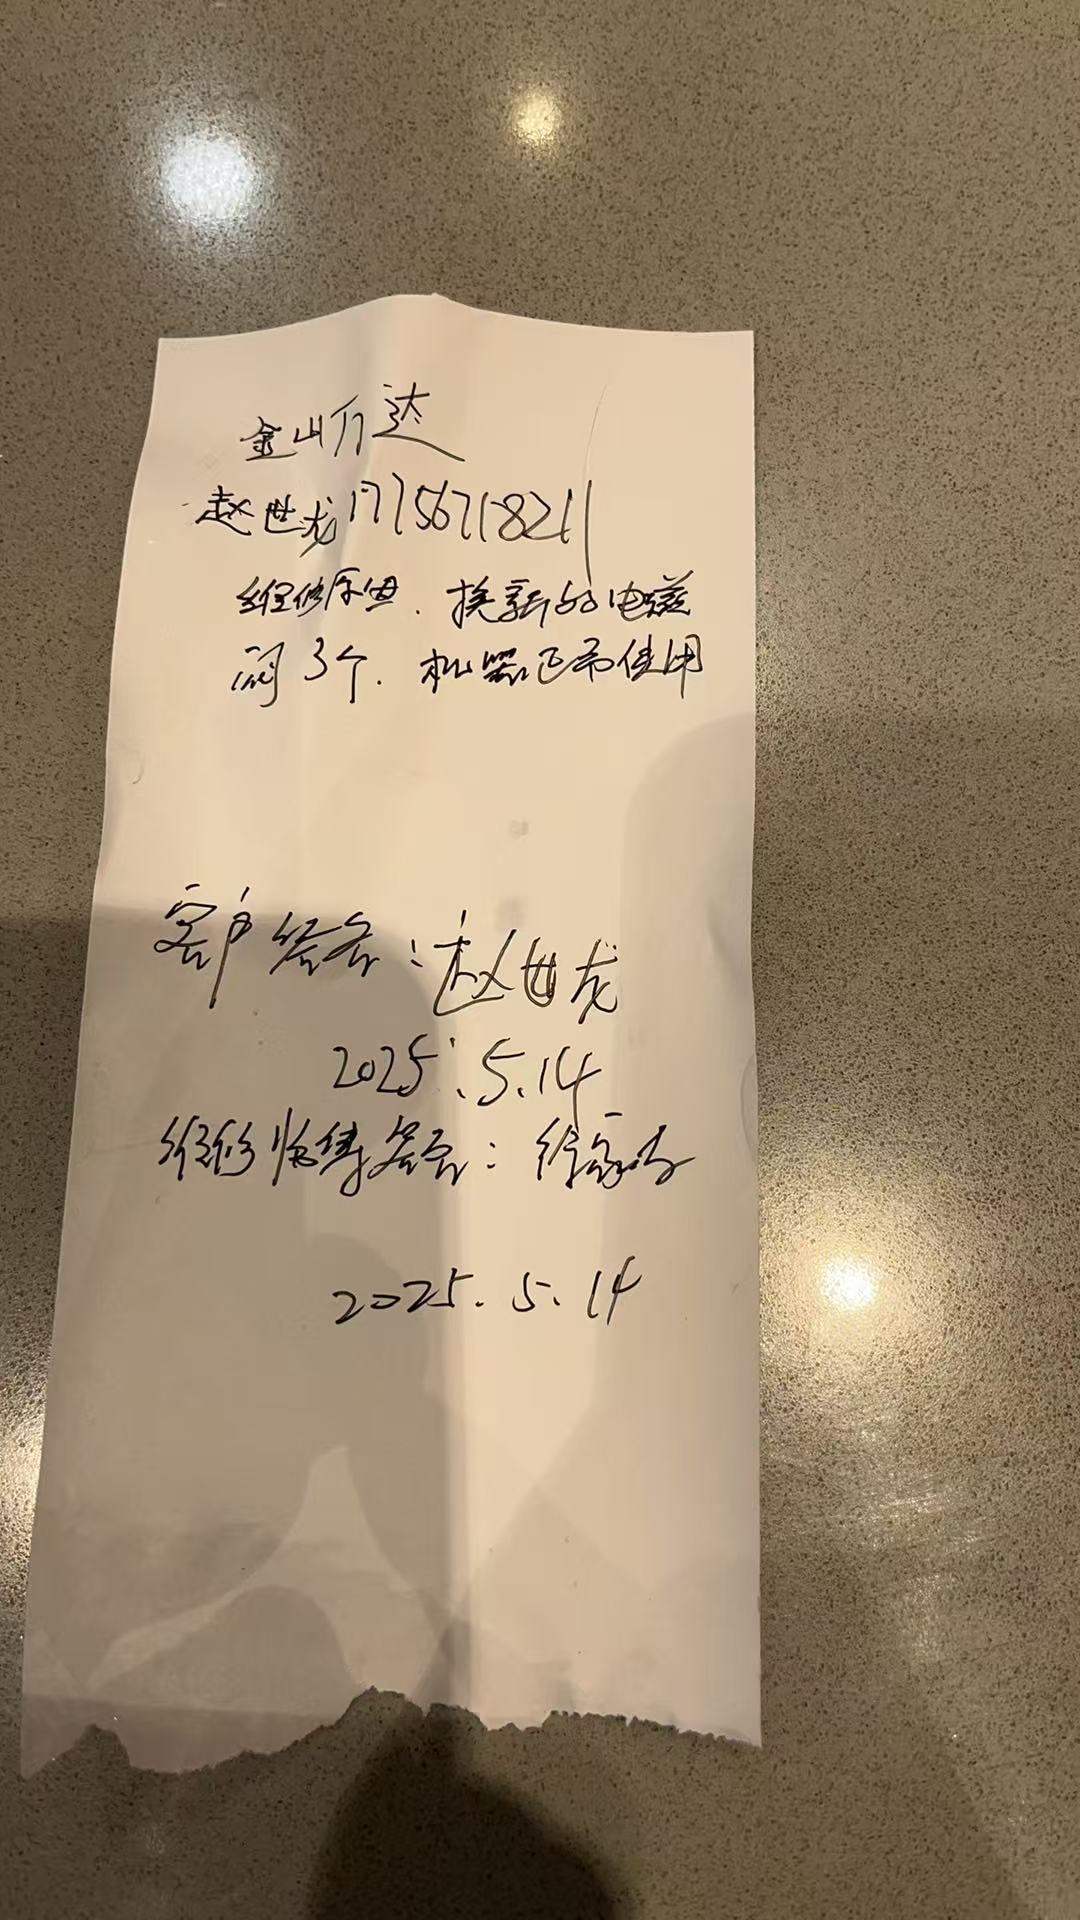 金山万达
赵世龙17756718211
维修原由.换新的电磁
阀3个.机器正常使用
客户签名:赵世龙
2025.5.14
维修师傅签名:徐
2025.5.14